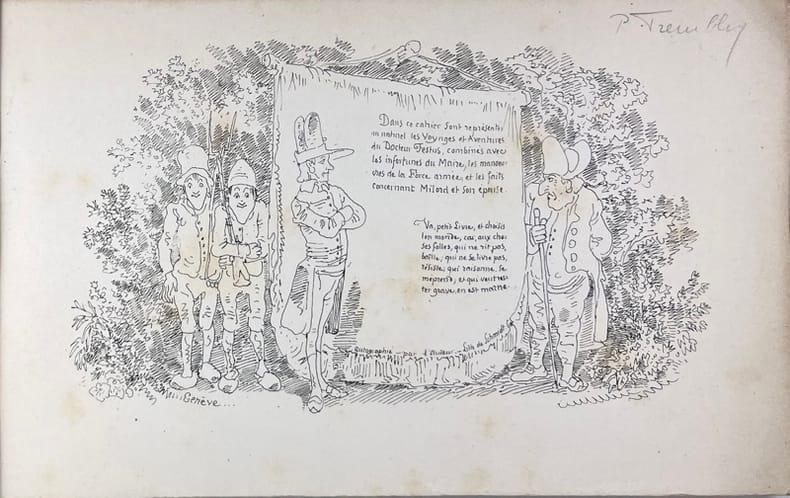 P. Trembley
Dans ce cahier sont représentés
au naturel les Voyages et Aventures
du Docteur Festus, combinés avec
les infortunes du Maire, les manœu-
vres de la Force armée, et les faits
concernant Milord et son épouse.
Va, petit Livre, et choisis
ton monde, car, aux cho-
ses folles, qui ne rit pas,
baille; qui ne se livre pas,
résiste; qui raisonne, se
méprend; et qui veut res-
ter grave, en est maître.
Autographié par l'Auteur. Lith. de Schmidt
Genève...